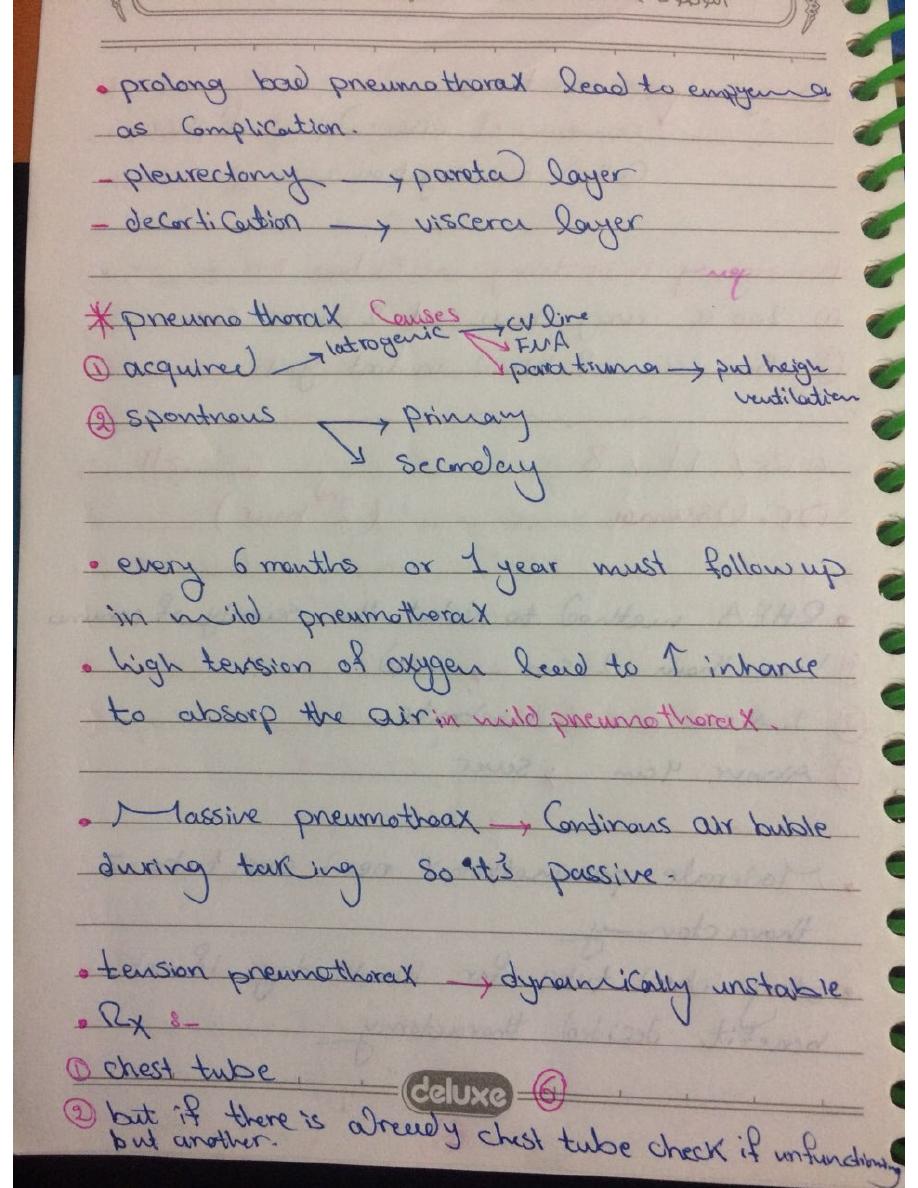 • prolong bad pneumothorax lead to empyema
as Complication.
- pleurectomy → pareta layer
- decortication → viscera layer
* pneumothorax Causes
① acquired → Iatrogenic → CV line
→ FNA
→ para truma → put heigh
ventilation
② spontnous → Primary
→ Seconday
• every 6 months or 1 year must follow up
in mild pneumothorax
• high tension of oxygen lead to ↑ inhance
to absorp the air in mild pneumothorax.
• Massive pneumothoax → Continous air buble
during taking so it's passive.
• tension pneumothorax → dynamically unstable
• Rx :-
① chest tube
deluxe ⑥
② but if there is already chest tube check if unfunctioning
but another.